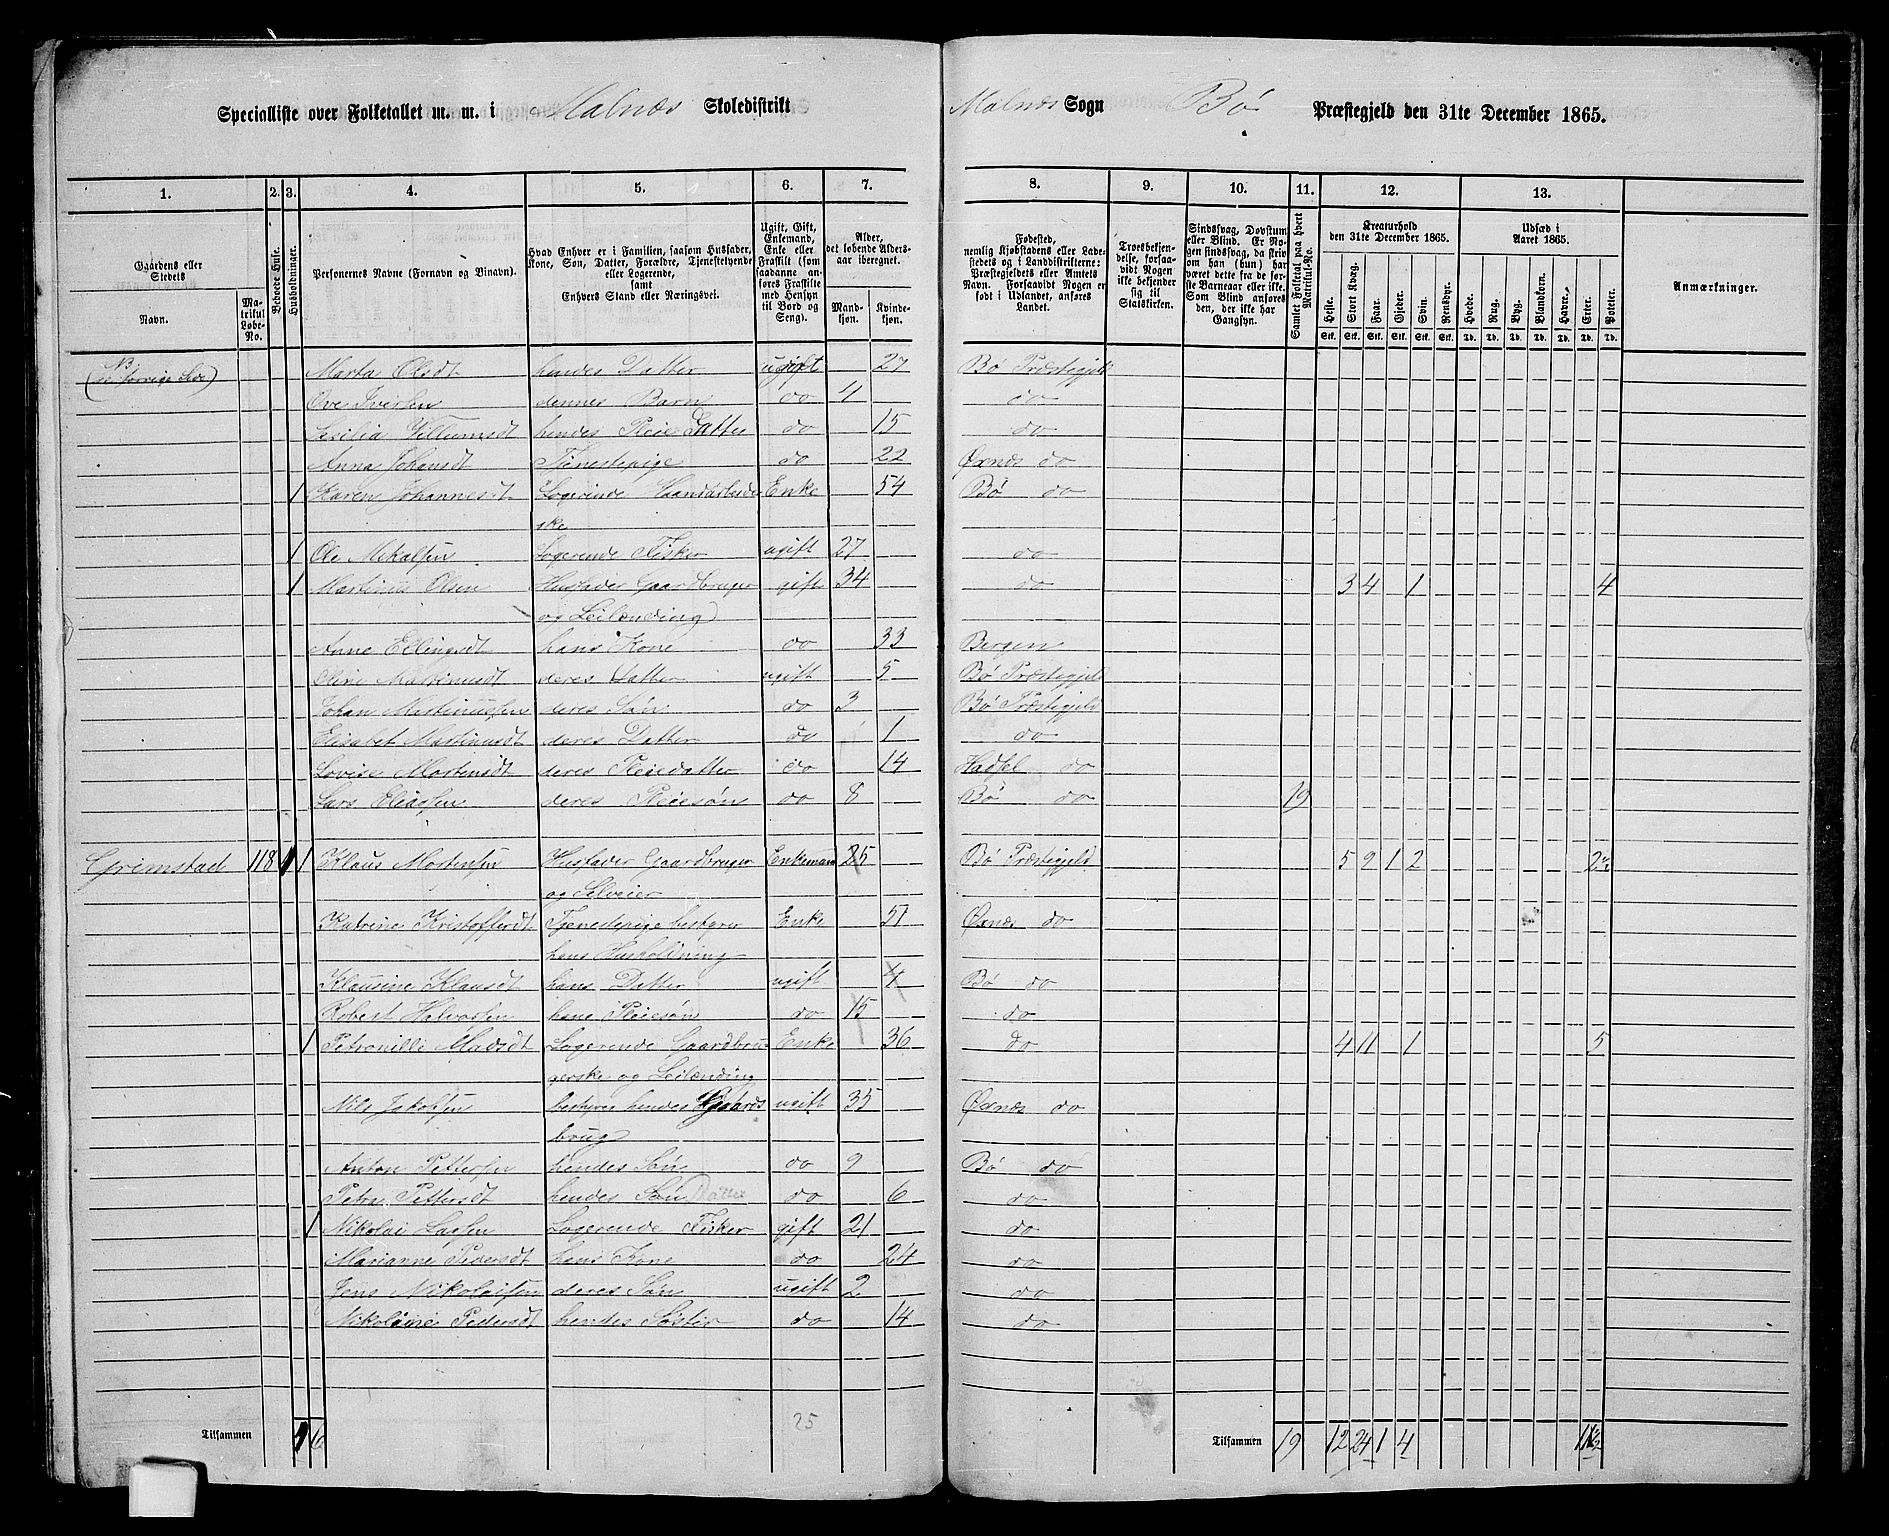 Specialliste over Folketallet m. m. i Malnæs Skoledistrikt Malnæs Sogn Bø Præstegjeld den 31te December 1865.
1. 2. 3. 4. 5. 6. 7. 8. 9. 10. 11. 12. 13.
Gaardens eller Stedets
Navn.
Matrikul Løbe-No.
Beboede Huse.
Husholdninger.
Personernes Navne (Fornavn og Tilnavn).
Hvad Enhver er i Familien, saasom Husfader, Kone, Søn, Datter, Forældre, Tjenestetyende eller Logerende, samt Enhvers Stand eller Næringsvei.
Ugift, Gift, Enkemand, Enke eller Fraskilt (som saadanne anføres Fraskilte med Hensyn til Bord og Seng).
Alder, det løbende Alders-aar iberegnet.
Mandkjøn. Kvindekjøn.
Fødested, nemlig Kjøbstadens eller Ladestedets og i Landdistrikterne: Præstegjeldets eller Amtets Navn. Forsaavidt Nogen er født i Udlandet, anføres Landet.
Troesbekjendelse, forsaavidt Nogen ikke bekjender sig til Statskirken.
Sindssvag, Døvstum eller Blind. Er Nogen sindssvag, da skriv om han (hun) har været dette fra de første Barneaar eller ikke. Som Blind anføres den, der ikke har Gangsyn.
Samlet Folketal paa hvert Matrikul-No.
Kreaturhold den 31te December 1865.
Heste. Stort Kvæg. Faar. Gjeder. Svin. Rensdyr.
Stk. Stk. Stk. Stk. Stk. Stk.
Udsæd i Aaret 1865.
Hvede. Rug. Byg. Blandkorn. Havre. Erter. Poteter.
Td. Td. Td. Td. Td. Td. Td.
Anmærkninger.
NB
(se forrige Side) Marta Olsdt hendes Datter ugift 27 Bø Præstegjeld
Ove Iversen dennes Barn do 4 do
Sesilia Villumsdt hendes Pleie Datter do 15 do
Anna Johansdt Tjenestepige do 22 Øxnæs do
1 Karen Johannesdt Logerende Haandarbeider Enke 54 Bø do
ske
1 Ole Mikalsen Logerende Fisker ugift 27 do
1 Martinus Olsen Husfader Gaardbruger gift 34 do 3 4 1 4
og Leilænding
Anne Ellingsdt hans Kone do 33 Bergen
Oline Martinusdt deres Datter ugift 5 Bø Præstegjeld
Johan Martinussen deres Søn do 3 Bø Præstegjeld
Elisabet Martinusdt deres Datter do 1 do
Lovise Mortensdt deres Pleiedatter do 14 Hadsel do
Lars Eliassen deres Pleiesøn do 8 Bø do 19
Grimstad 118 1 1 Klaus Mortensen Husfader Gaardbruger Enkemand 25 Bø Præstegjeld 5 9 1 2 2 1/2
og Selveier
Katrine Kristoffersdt Tjenestepige bestyrer Enke 51 Øxnæs do
hans Husholdning
Klausine Klausdt hans Datter ugift 4 Bø do
Robert Halvorsen hans Pleiesøn do 15 do
1 Petronille Madsdt Logerende Gaardbru Enke 36 do 4 11 1 5
gerske og Leilænding
Nils Jakobsen bestyrer hendes Gaards ugift 35 Øxnæs do
brug
Anton Pettersen hendes Søn do 9 Bø do
Petra Pettersdt hendes Søn Datter do 6 do
1 Nikolai Larsen Logerende Fisker gift 21 do
Marianne Pedersdt hans Kone do 24 do
Jens Nikolaisen deres Søn ugift 2 do
Nikoline Pedersdt hendes Søster do 14 do
25
Tilsammen 1 6 Tilsammen 19 12 24 1 4 11 1/2